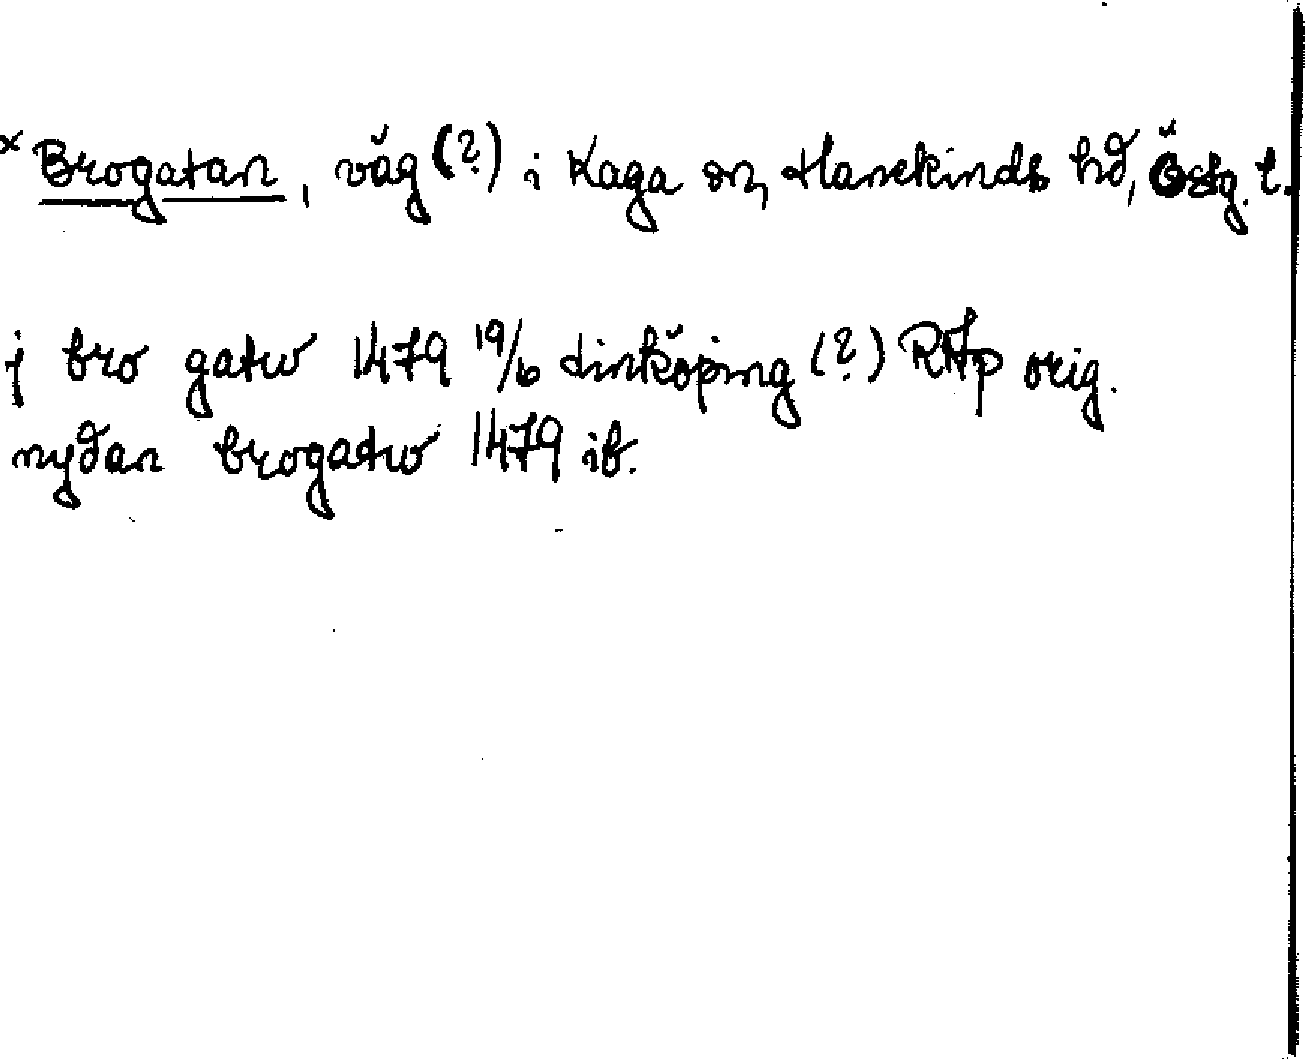 × Brogatan, väg (?) i Kaga sn, Hanekinds hd, Östg. l.
j bro gatw 1479 19/6 Linköping (?) RAp orig.
nydan brogatw 1479 ib.